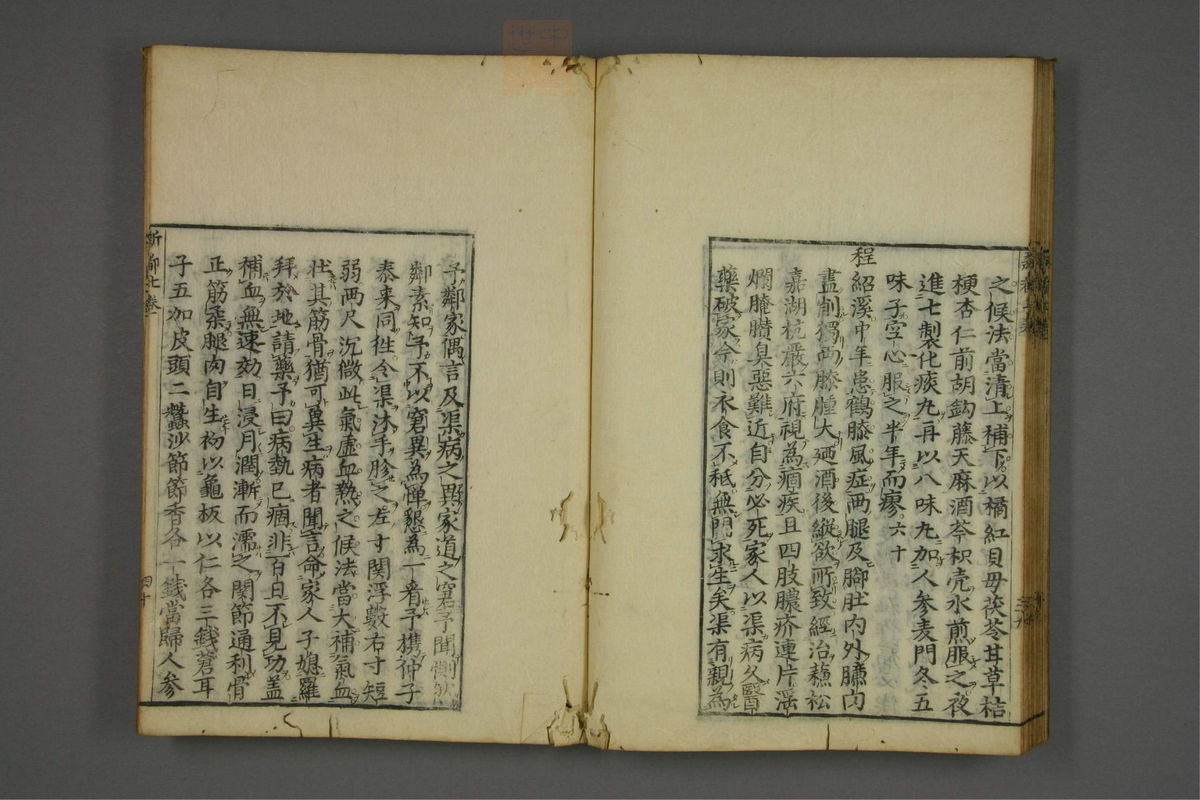 之候法當清上補下以橘紅貝母茯苓甘草桔
梗杏仁前胡鈎藤天麻酒芩枳壳水煎服之夜
進七製化痰丸再以八味丸加人参麦門冬五
味子空心服之半年而瘳六十
程紹溪中年患鶴膝風症两腿及脚肚内外臁肉
盡削獨两膝腫大廼酒後縱欲所致經治蘇松
嘉湖杭嚴六府視為痼疾且四肢膿疥連片滛
爛腌臢臭惡難近自分必死家人以渠病久醫
藥破家今則衣食不秪無門求生矣渠有親為
予鄰家偶言及渠病之異家道之窘予聞惻然
鄰素知予不以窘異為憚懇為一看予携仲子
泰来同徃令渠沐手胗之左寸関浮數右寸短
弱两尺沉微此氣虚血熱之候法當大補氣血
壮其筋骨猶可兾生病者聞言命家人子媳羅
拜於地請藥予曰病勢已痼非百日不見功盖
補血無速効日浸月潤漸而濡之関節通利骨
正筋柔腿肉自生初以龜板以仁各三錢蒼耳
子五加皮頭二蠶沙節節香各一錢當歸人参
四十